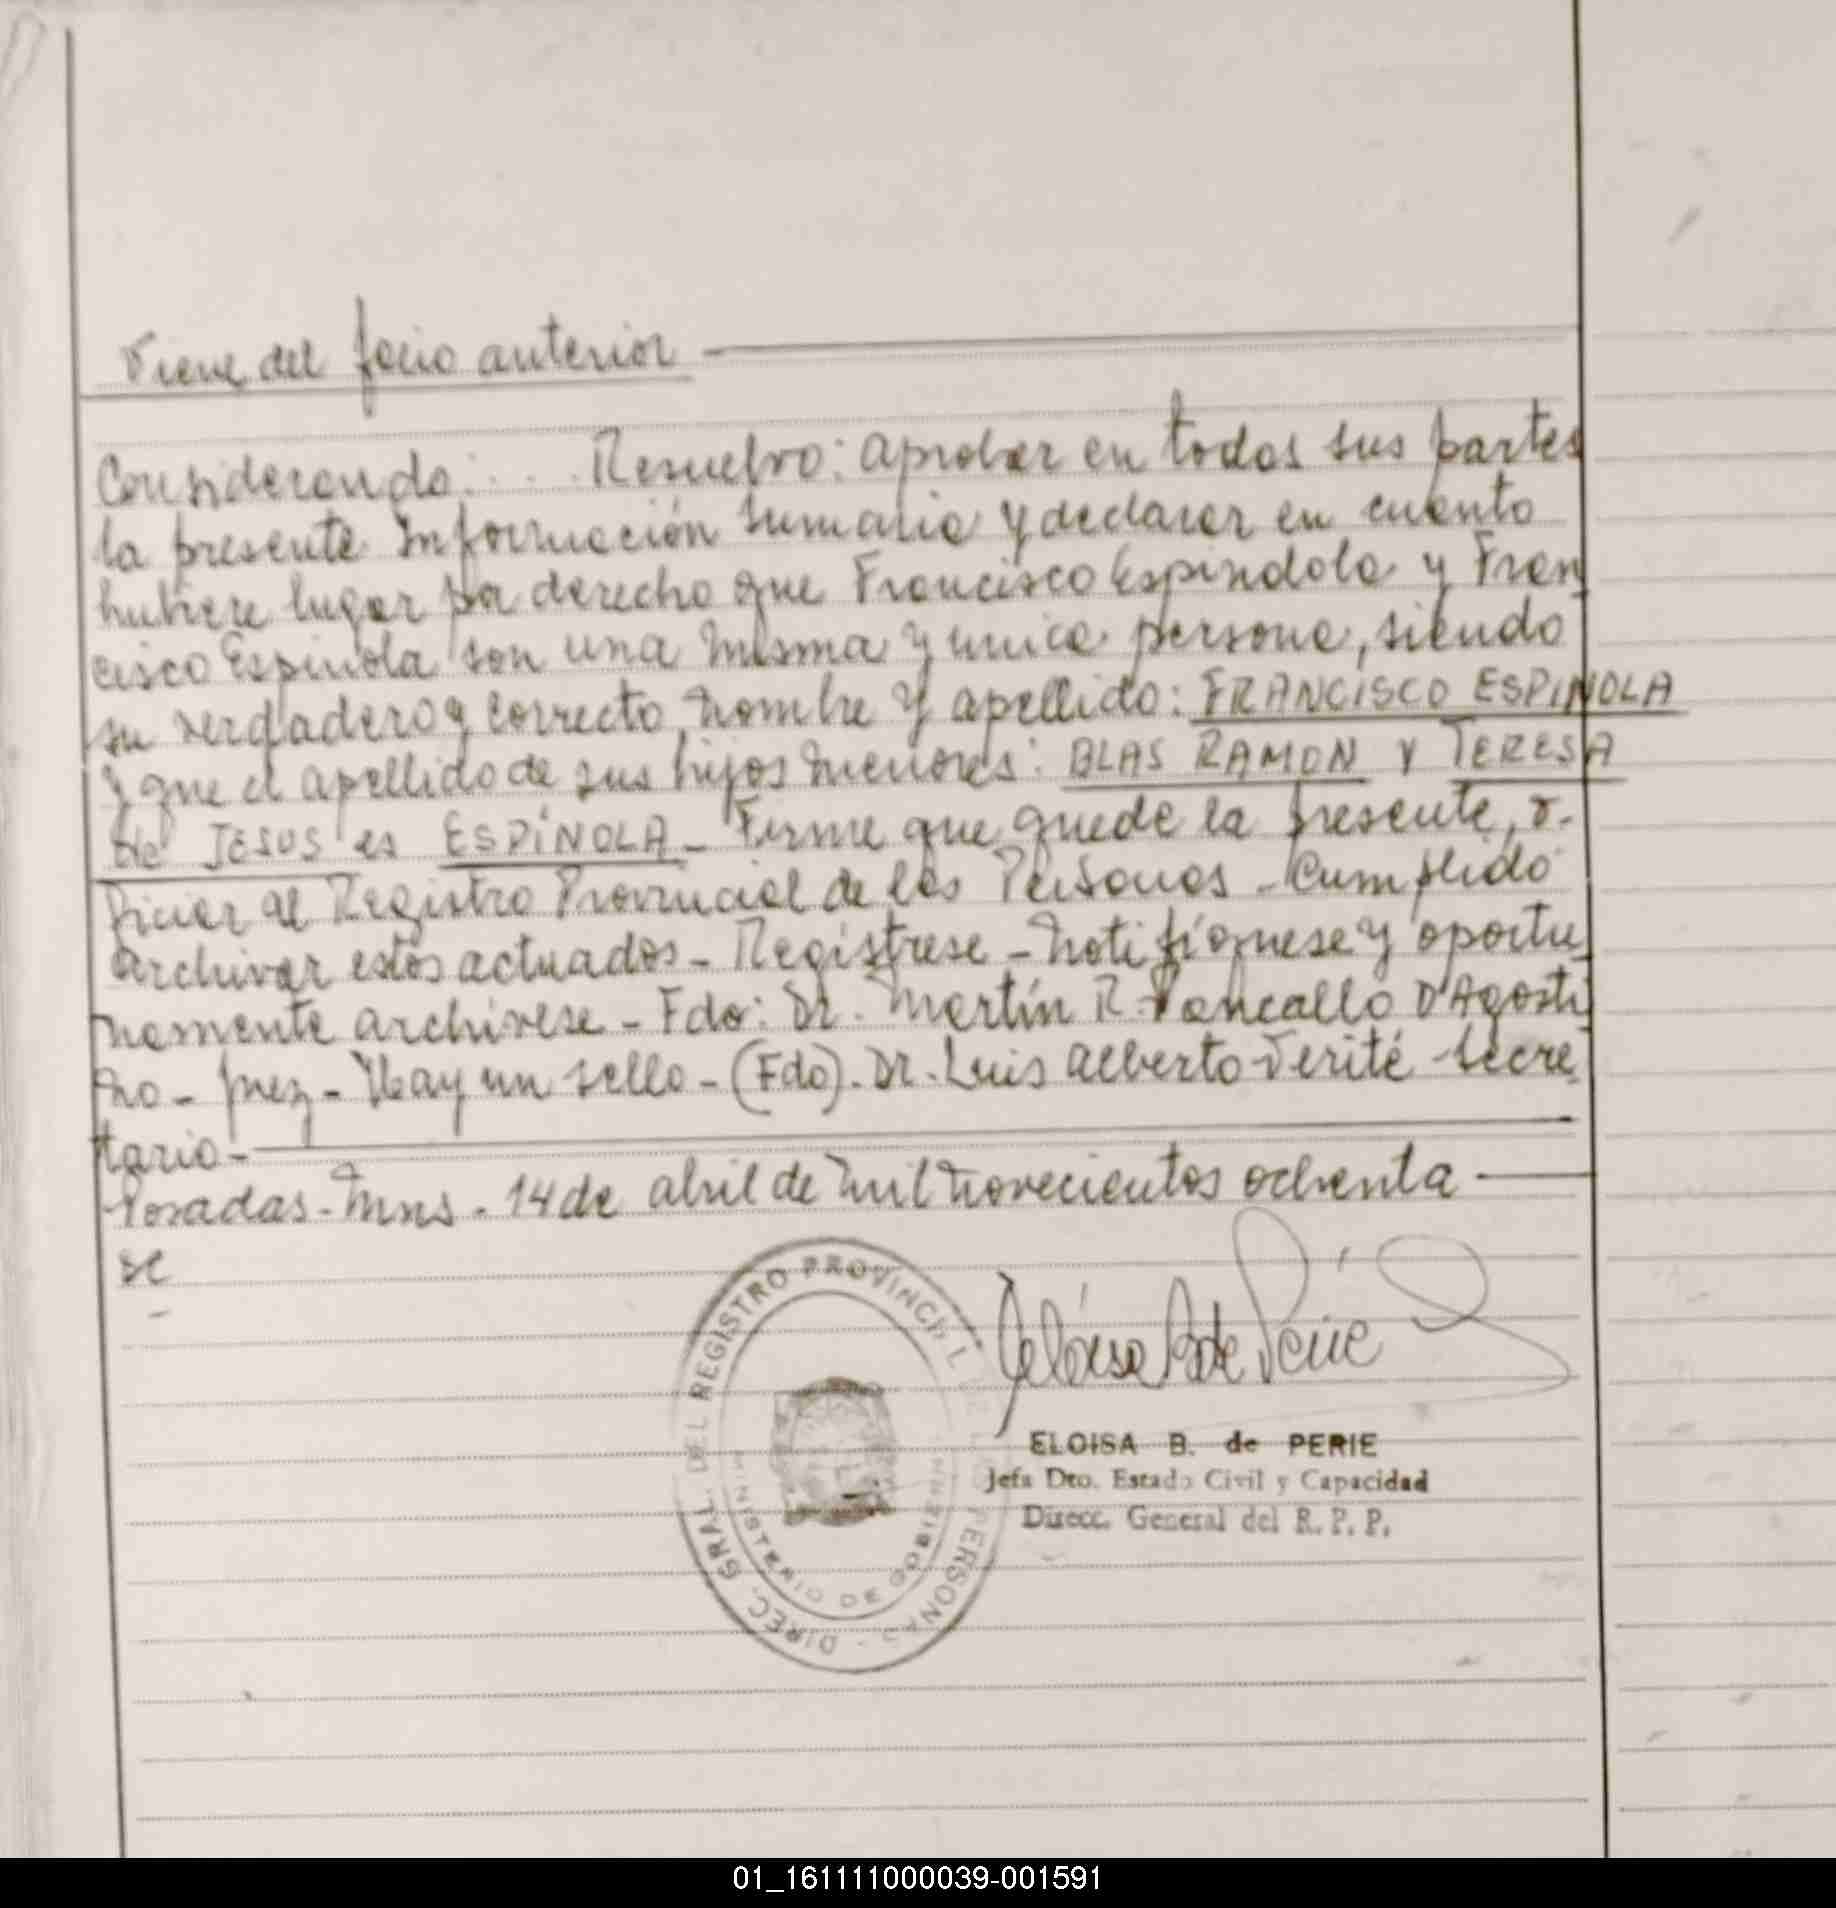 Viene del folio anterior
Considerando: . . . Resuelvo: aprobar en todas sus partes
la presente Información Sumaria y declarar en cuanto
hubiere lugar por derecho que Francisco Espindola y Fran
cisco Espinola son una misma y unica persona, siendo
su verdadero y correcto nombre y apellido: FRANCISCO ESPINOLA
y que el apellido de sus hijos menores: BLAS RAMON Y TERESA
de JESUS es ESPÍNOLA - Firme que quede la presente, o-
ficiar al Registro Provincial de las Personas - Cumplido
archivar estos actuados - Regístrese - notifíquese y oportu
namente archívese - Fdo: Dr. Martín R. Roncallo D'Agosti
no - Juez - Hay un sello - (Fdo). Dr. Luis Alberto Verité - Secre
tario -
Posadas - Mns - 14 de abril de mil novecientos ochenta
se
DIREC. GRAL. DEL REGISTRO PROVINCIAL DE LAS PERSONAS -
MINISTERIO DE GOBIERNO
ELOISA B. de PERIE
Jefa Dto. Estado Civil y Capacidad
Direcc. General del R. P. P.
01_161111000039-001591